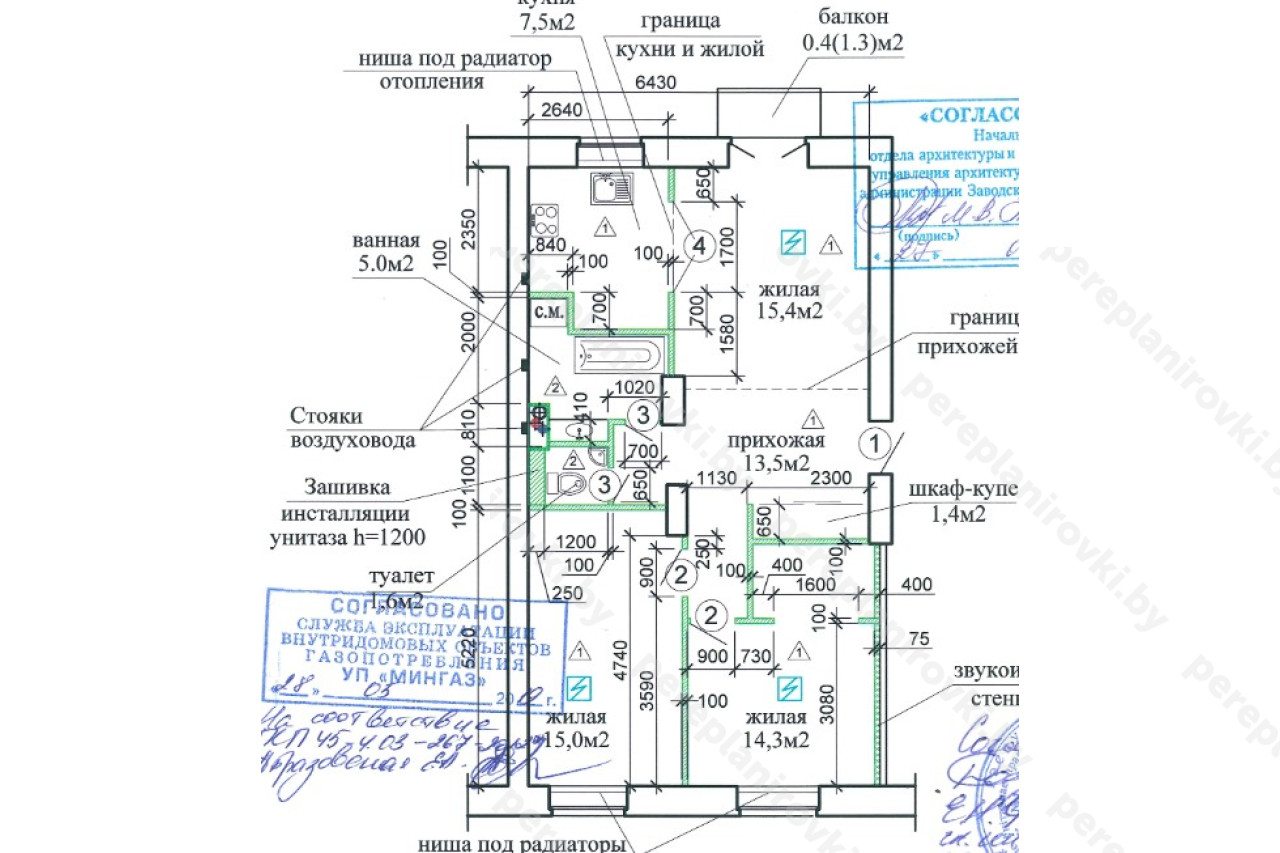 кухня
7,5м2
граница
кухни и жилой
балкон
0.4(1.3)м2
ниша под радиатор
отопления
6430
2640
«СОГЛАСО
Началь
отдела архитектуры и
управления архитекту
администрации Заводск
(подпись)
«27»
650
2350
100
840
100
100
4
1700
1
1
ванная
5.0м2
жилая
15,4м2
с.м.
700
700
1580
2000
границ
прихожей
2
1020
410
3
Стояки
воздуховода
810
700
1
прихожая
13,5м2
1
2
3
650
1130
2300
1100
100
Зашивка
инсталляции
унитаза h=1200
шкаф-купе
1,4м2
650
1200
100
250
900
250
2
100
400
100
1600
400
туалет
1,6м2
2
100
75
СОГЛАСОВАНО
СЛУЖБА ЭКСПЛУАТАЦИИ
ВНУТРИДОМОВЫХ ОБЪЕКТОВ
ГАЗОПОТРЕБЛЕНИЯ
УП «МИНГАЗ»
«28» 03 2012 г.
5220
1
4740
3590
900
730
1
3080
100
звукои
стен
На соответствие
жилая
15,0м2
жилая
14,3м2
ниша под радиаторы
pereplanirovki.by
pereplanirovki.by
pereplanirovki.by